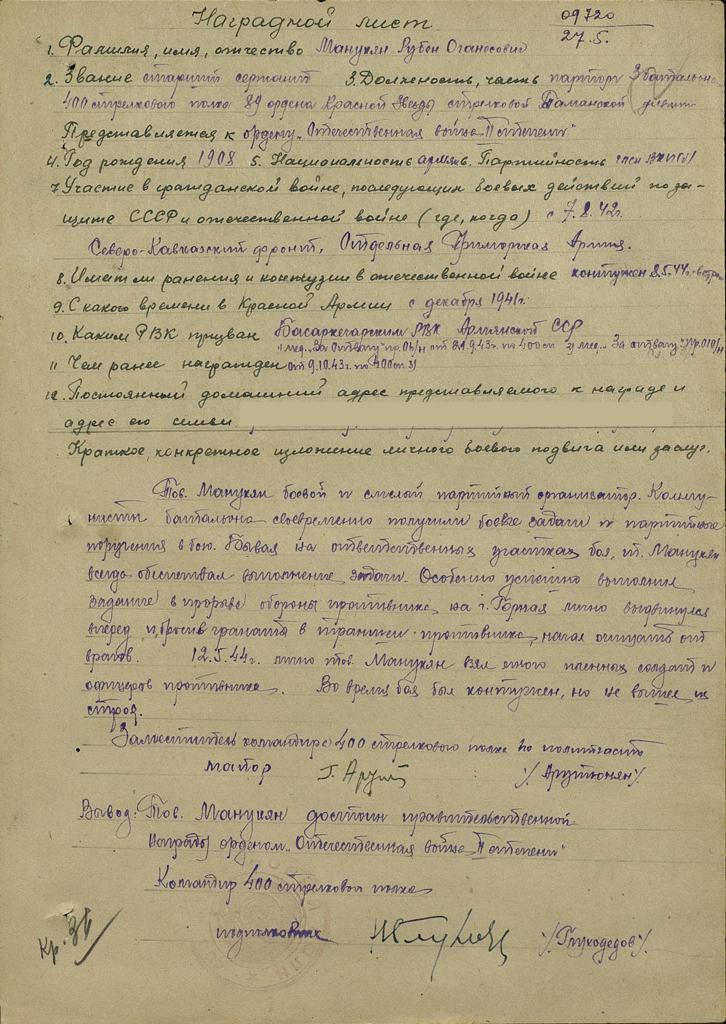 Наградной лист
09720
27.5.
1. Фамилия, имя, отчество Манукян Рубен Оганесович
2. Звание старший сержант 3. Должность, часть парторг 3 батальона
400 стрелкового полка 89 ордена Красной Звезды стрелковой Таманской
Представляется к ордену „Отечественная война II степени"
4. Год рождения 1908 5. Национальность армян 6. Партийность член ВКП(б)
7. Участие в гражданской войне, последующих боевых действий по за-
щите СССР и отечественной войне (где, когда) с 7.8.42г.
Северо-Кавказский фронт, Отдельная Приморская Армия.
8. Имеет ли ранения и контузии в отечественной войне контужен 8.5.44г.
9. С какого времени в Красной Армии с декабря 1941г.
10. Каким РВК призван Басаргечарским РВК Армянской ССР
1) мед. „За отвагу" пр. 04/н от 21.9.43г. по 400 сп 2) мед. „За отвагу" пр. 010/н
11. Чем ранее награжден от 9.10.43г. по 400 сп
12. Постоянный домашний адрес представляемого к награде и
адрес его семьи
Краткое, конкретное изложение личного боевого подвига или заслуг.
Тов. Манукян боевой и смелый партийный организатор. Комму-
нисты батальона своевременно получили боевые задачи и партийные
поручения в бою. Бывая на ответственных участках боя, т. Манукян
всегда обеспечивал выполнение задачи. Особенно успешно выполнил
задание в прорыве обороны противника, на г. Горная лично выдвинулся
вперед и, бросив гранаты в траншеи противника, начал очищать от
врагов. 12.5.44г. лично тов. Манукян взял много пленных солдат и
офицеров противника. Во время боя был контужен, но не вышел из
строя.
Заместитель командира 400 стрелкового полка по политчасти
майор /Арутюнян/.
Вывод: Тов. Манукян достоин правительственной
награды орденом „Отечественная война II степени"
Командир 400 стрелкового полка
подполковник /Глуходедов/.